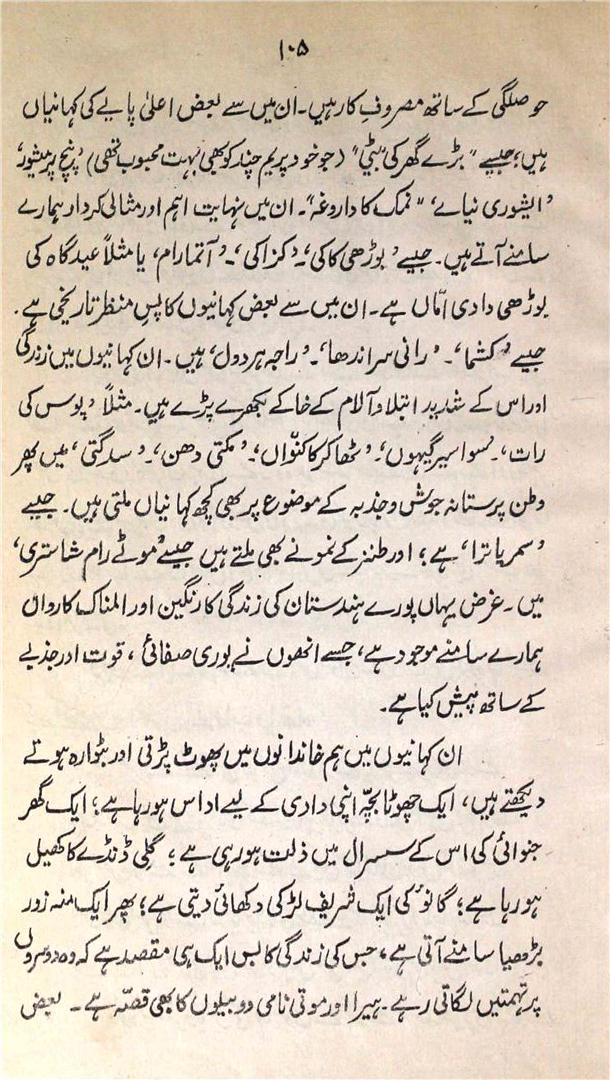 ۱۰۵
حوصلگی کے ساتھ مصروف کار ہیں۔ ان میں سے بعض اعلیٰ پایے کی کہانیاں
ہیں؛ جیسے "بڑے گھر کی بیٹی" (جو خود پریم چند کو بھی بہت محبوب تھی) 'پنچ پرمیشور'
'ایشوری نیائے'، "نمک کا داروغہ"۔ ان میں نہایت اہم اور مثالی کردار ہمارے
سامنے آتے ہیں۔ جیسے 'بوڑھی کاکی'۔ 'کزاکی'۔ 'آتمارام'، یا مثلاً عیدگاہ کی
بوڑھی دادی امّاں ہے۔ ان میں سے بعض کہانیوں کا پس منظر تاریخی ہے۔
جیسے 'کشما'۔ 'رانی سراندھا'۔ 'راجہ ہردول' ہیں۔ ان کہانیوں میں زندگی
اور اس کے شدید ابتلا و آلام کے خاکے بکھرے پڑے ہیں۔ مثلاً 'پوس کی
رات'۔ 'سوا سیر گیہوں'، 'ٹھاکر کا کنواں'۔ 'مکتی دھن'۔ 'سدگتی' میں پھر
وطن پرستانہ جوش و جذبہ کے موضوع پر بھی کچھ کہانیاں ملتی ہیں۔ جیسے
'سمر یاترا' ہے؛ اور طنز کے نمونے بھی ملتے ہیں جیسے 'موٹے رام شاستری'
میں۔ غرض یہاں پورے ہندستان کی زندگی کا رنگین اور المناک کارواں
ہمارے سامنے موجود ہے، جسے انھوں نے پوری صفائی، قوت اور جذبے
کے ساتھ پیش کیا ہے۔
ان کہانیوں میں ہم خاندانوں میں پھوٹ پڑتی اور بٹوارہ ہوتے
دیکھتے ہیں، ایک چھوٹا بچّہ اپنی دادی کے لیے اداس ہو رہا ہے؛ ایک گھر
جنوائی کی اس کے سسرال میں ذلت ہو رہی ہے؛ گلی ڈنڈے کا کھیل
ہو رہا ہے؛ گانوٴ کی ایک شریف لڑکی دکھائی دیتی ہے؛ پھر ایک منہ زور
بڑھیا سامنے آتی ہے، جس کی زندگی کا بس ایک ہی مقصد ہے کہ وہ دوسروں
پر تہمتیں لگاتی رہے۔ ہیرا اور موتی نامی دو بیلوں کا بھی قصّہ ہے۔ بعض